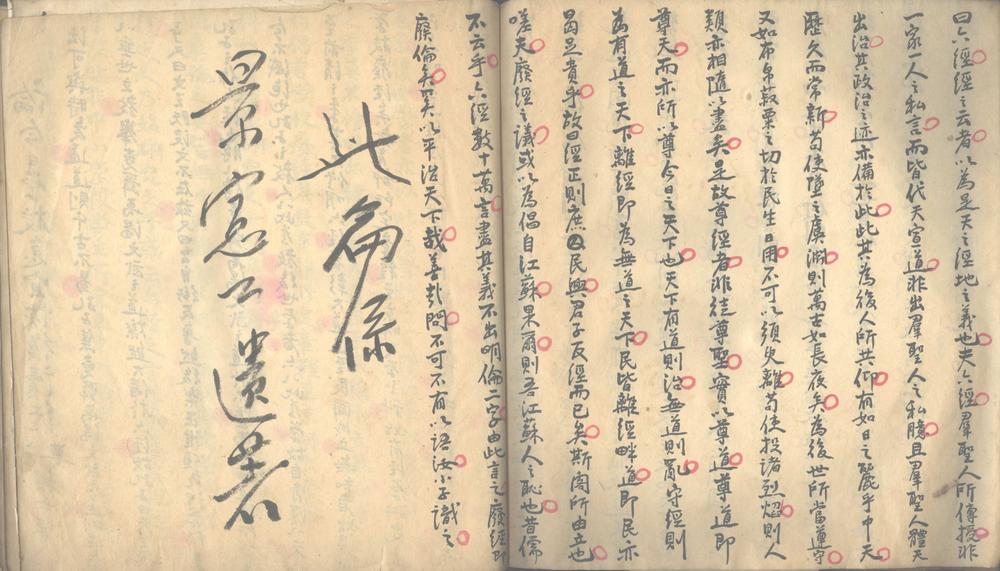 曰六經經之云者以為是天之經地之義也夫六經羣聖人所傳授非
一家一人之私言而皆代天宣道非出羣聖人之私臆且羣聖人體天
出治其政治之迹亦備於此此其為後人所共仰有如日之麗乎中天
歷久而常新苟使墜之虞淵則萬古如長夜矣為後世所當遵守
又如布帛菽粟之切於民生日用不可以須臾離苟使投諸烈焰則人
類亦相隨以盡矣是故尊經者非徒尊聖實以尊道尊道即
尊天而亦所以尊今日之天下也天下有道則治無道則亂守經則
為有道之天下離經即為無道之天下民皆離經畔道即民亦
曷足貴乎故曰經正則庶民興君子反經而已矣斯閣所由立也
嗟夫廢經之議或以為倡自江蘇果爾則吾江蘇人之恥也昔儒
不云乎六經數十萬言盡其義不出明倫二字由此言之廢經即
廢倫矣奚以平治天下哉善哉問不可不有以語汝小子識之
此篇係
景憲公遺著